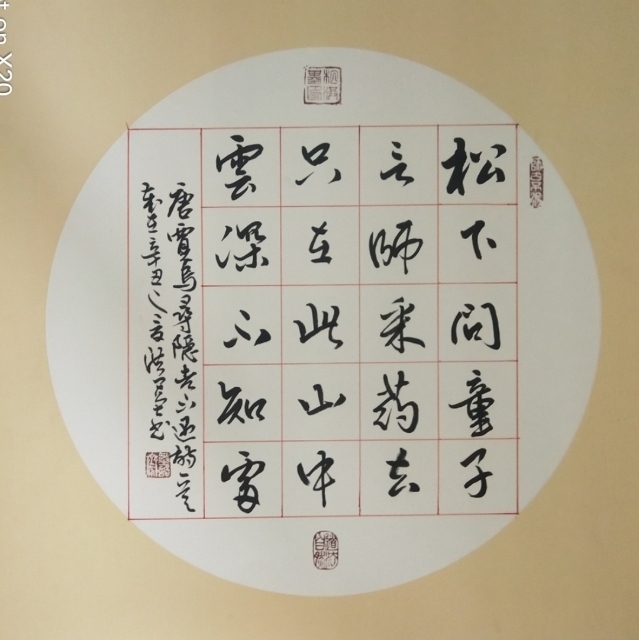 松下問童子
言師采药去
只在此山中
雲深不知處
唐賈島尋隱者不遇詩一首
歲在辛丑之
t on X20